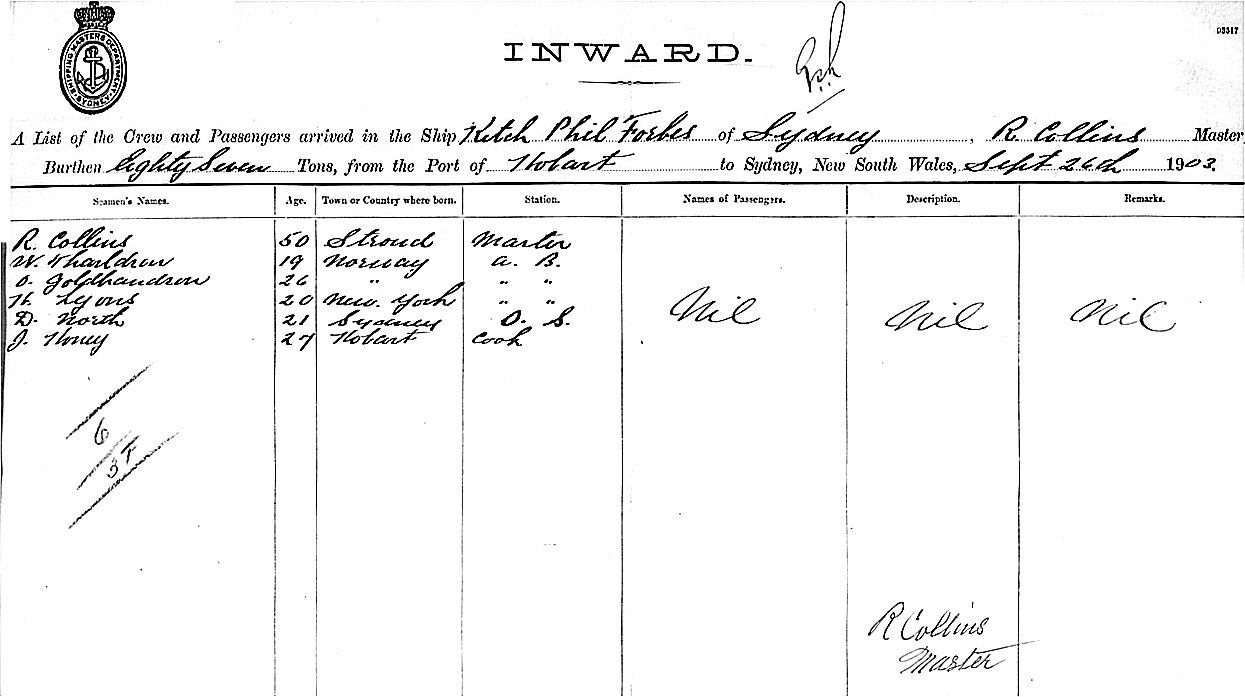 SHIPPING MASTERS DEPARTMENT
SYDNEY
D3317
INWARD.
A List of the Crew and Passengers arrived in the Ship Ketch Phil Forbes of Sydney, R. Collins Master
Burthen Eighty Seven Tons, from the Port of Hobart to Sydney, New South Wales, Sept 26th 1903.
Seamen's Names. Age. Town or Country where born. Station. Names of Passengers. Description. Remarks.
R. Collins 50 Stroud Master
W. Tharldrow 19 Norway A. B.
O. Goldhandrow 26 " " "
H. Lyons 20 New York " "
Nil Nil Nil
D. North 21 Sydney O. S.
J. Honey 27 Hobart Cook
6
3F
R Collins
Master